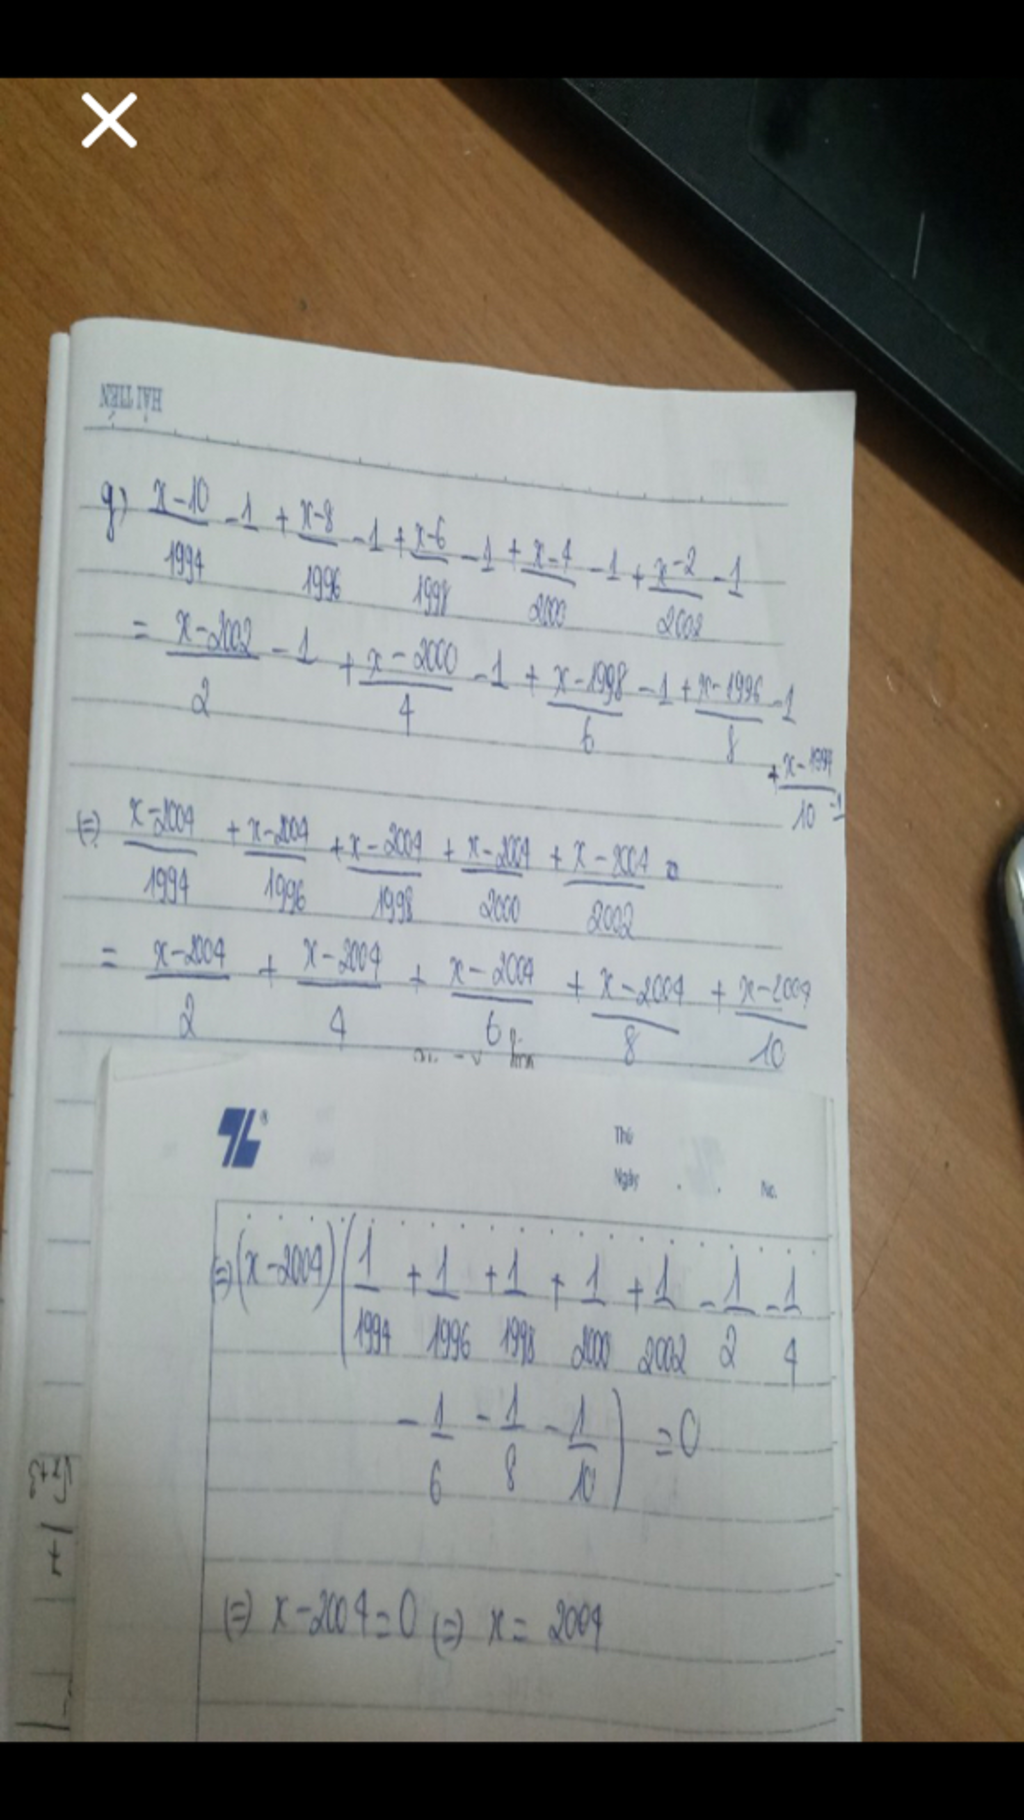 HẢI TIẾN
g) x-10/1994 - 1 + x-8/1996 - 1 + x-6/1998 - 1 + x-4/2000 - 1 + x-2/2002 - 1
= x-2002/2 - 1 + x-2000/4 - 1 + x-1998/6 - 1 + x-1996/8 - 1
+ x-1994/10 - 1
(=) x-2004/1994 + x-2004/1996 + x-2004/1998 + x-2004/2000 + x-2004/2002
= x-2004/2 + x-2004/4 + x-2004/6 + x-2004/8 + x-2004/10
Thứ
Ngày No.
(=) (x-2004) (1/1994 + 1/1996 + 1/1998 + 1/2000 + 1/2002 - 1/2 - 1/4
- 1/6 - 1/8 - 1/10) = 0
(=) x-2004=0 (=) x = 2004